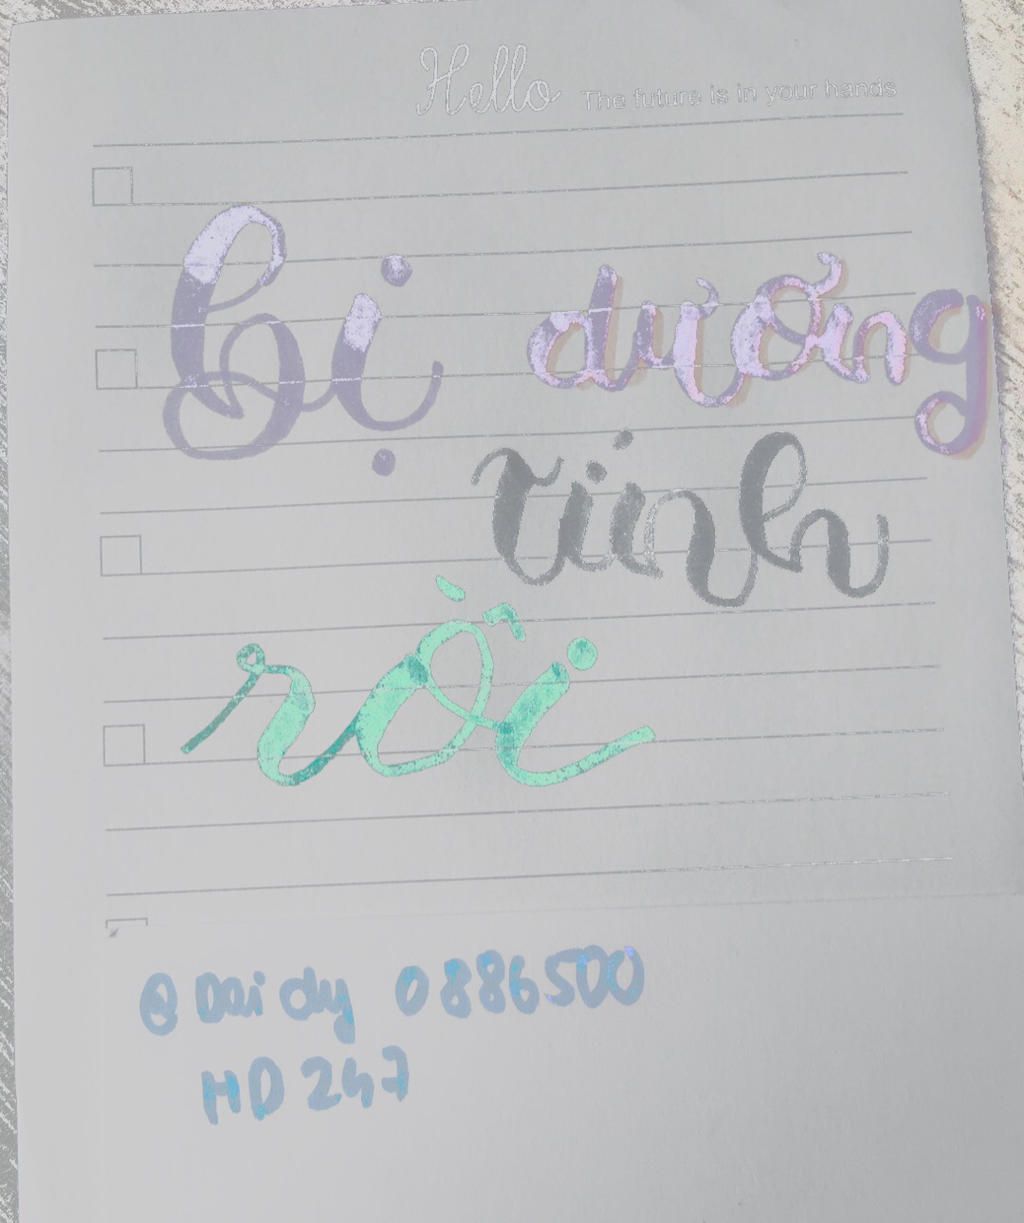 Hello The future is in your hands
bị dương
tính
rồi
@Daidy 0886500
HD 247